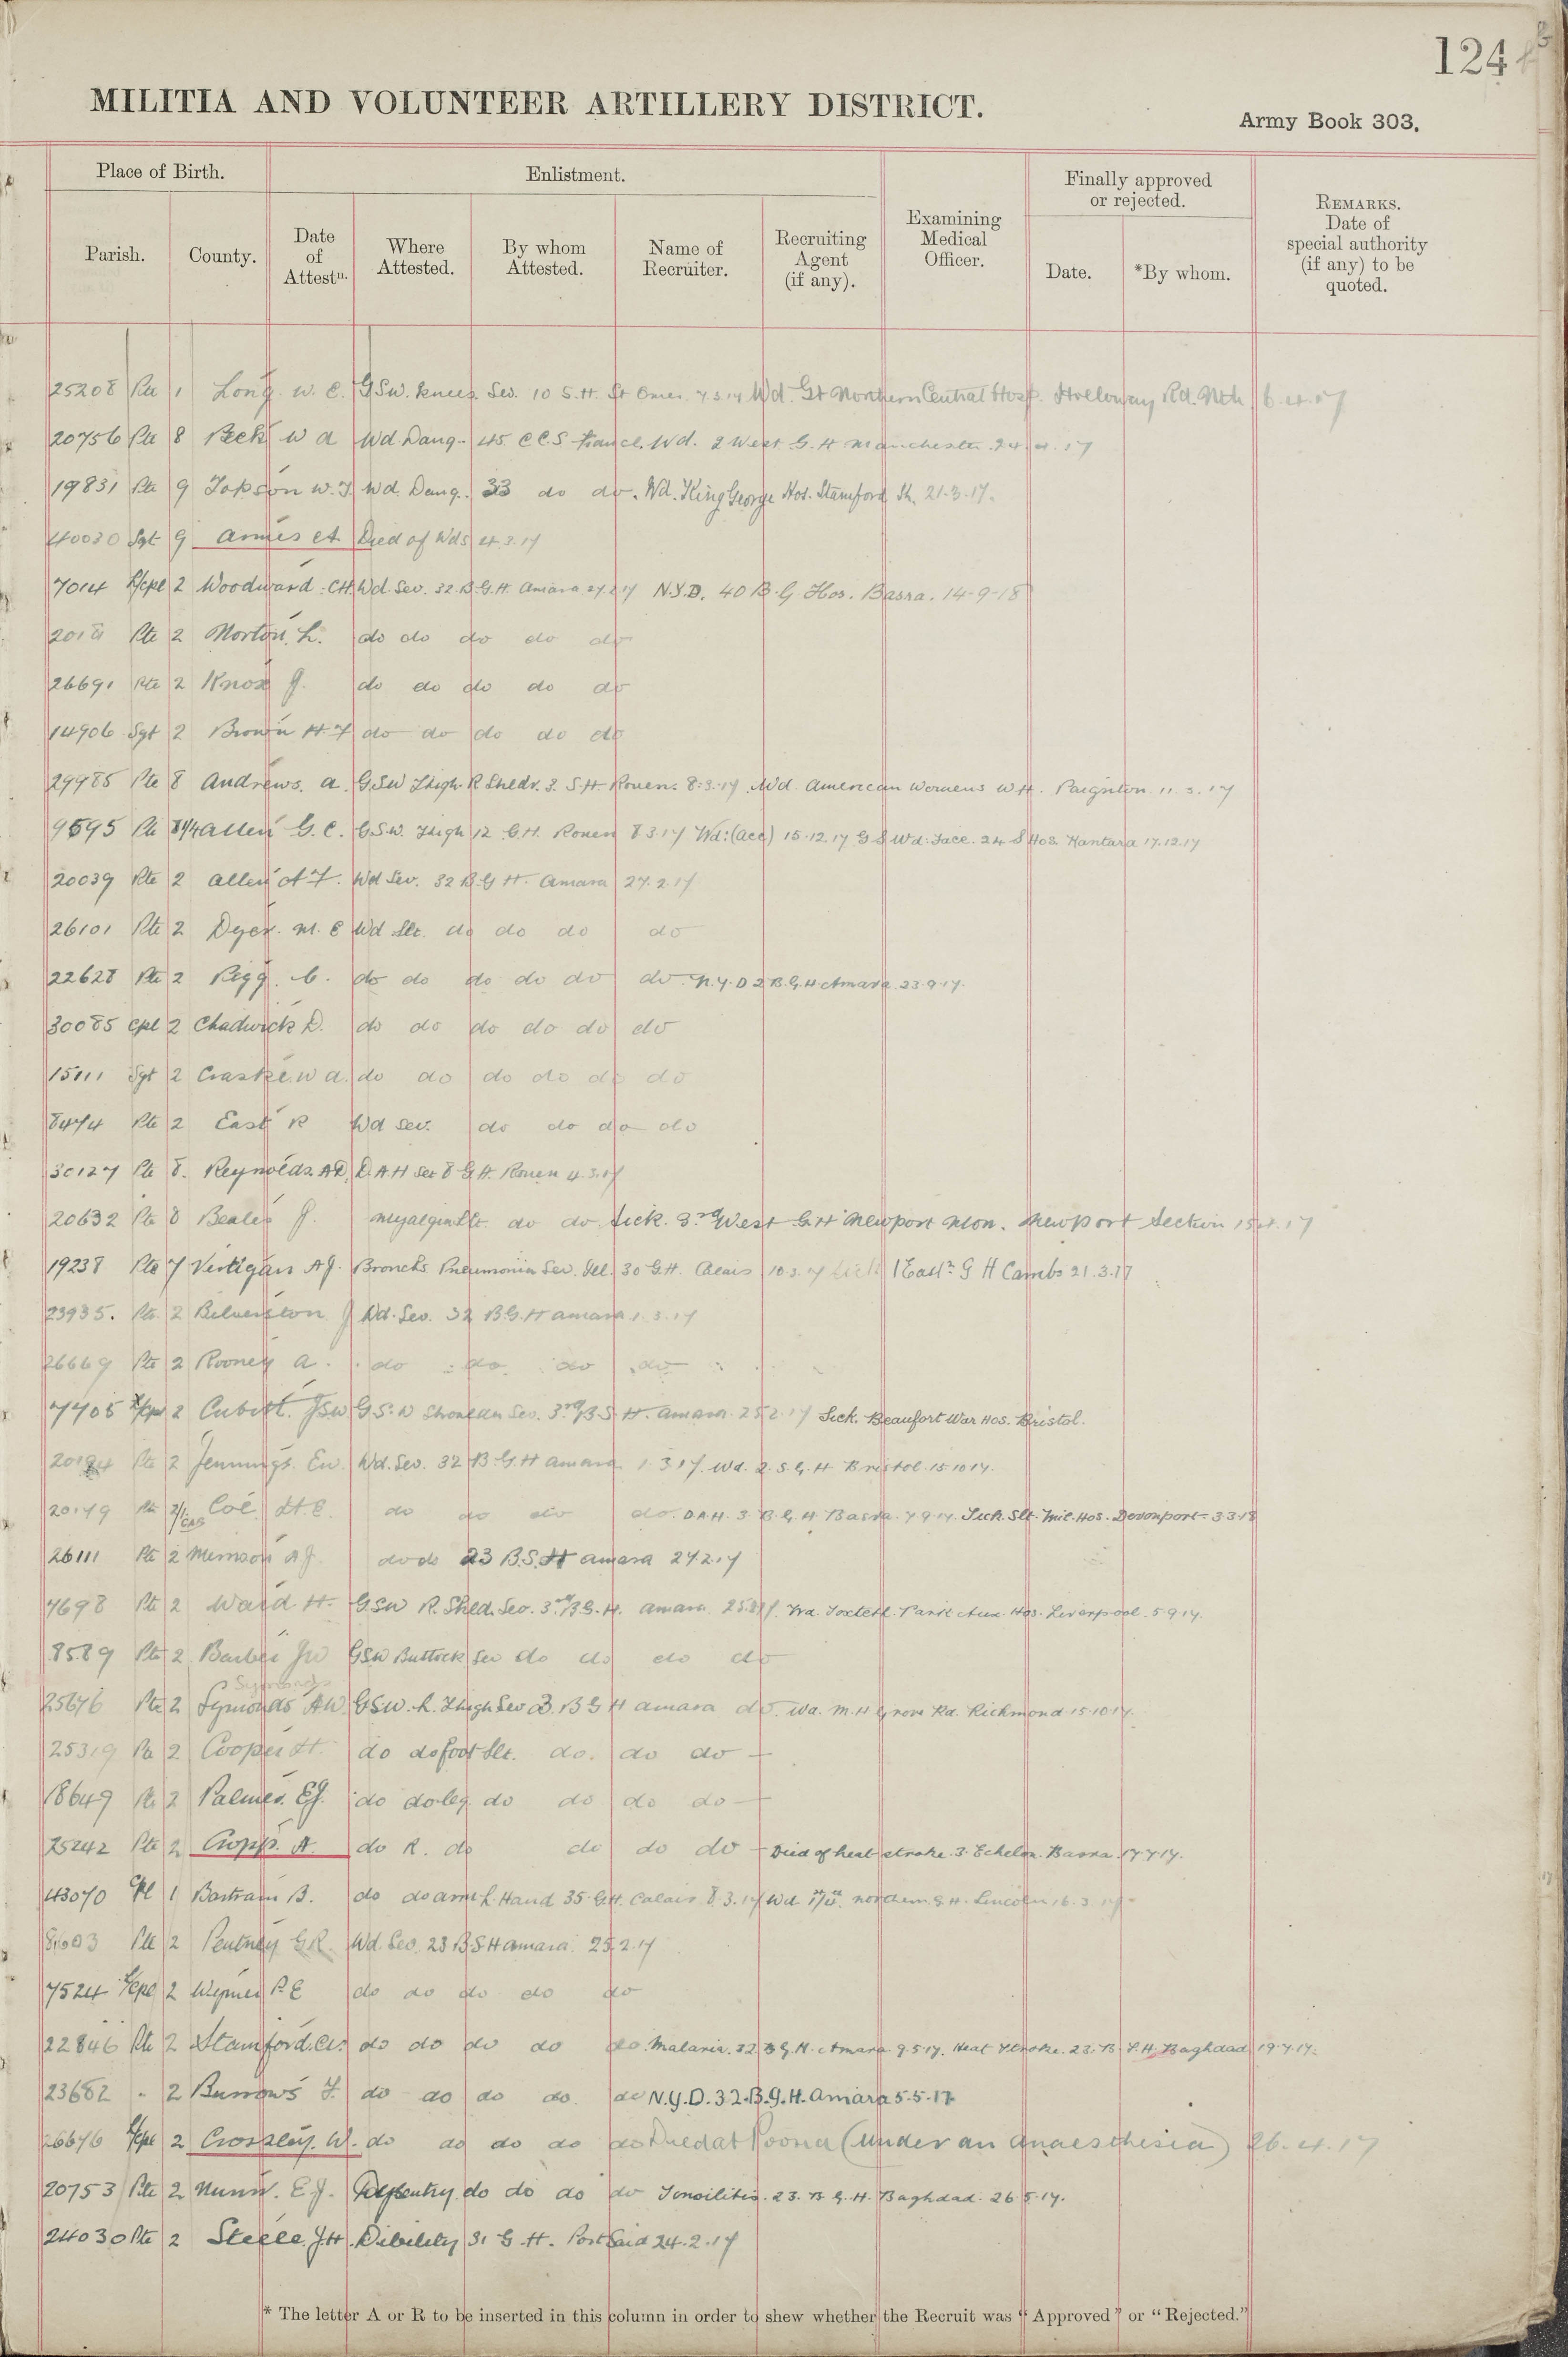 124
MILITIA AND VOLUNTEER ARTILLERY DISTRICT.
Army Book 303.
Place of Birth.
Enlistment.
Finally approved
or rejected.
Parish.
County.
Date
of
Attestn.
Where
Attested.
By whom
Attested.
Name of
Recruiter.
Recruiting
Agent
(if any).
Examining
Medical
Officer.
Date.
*By whom.
REMARKS.
Date of
special authority
(if any) to be
quoted.
25208 Pte 1 Long. W. C. GSW. knees Sev. 10 S.H. St Omer. 7.3.17 Wd. Gt Northern Central Hosp. Holloway Rd. Nth 6.4.17
20756 Pte 8 Peck W A Wd. Dang. 45 C.C.S France. Wd. 2 West G.H Manchester 24.4.17
19831 Pte 9 W.J. Wd. Dang. 33 do do. Wd. King George Hos. Stamford St. 21.3.17.
40030 Sgt 9 Annis Died of Wds 4.3.17
7014 L/Cpl 2 Woodward. CH. Wd. Sev. 32. B.G.H. Amara 27.2.17 N.Y.D. 40 B.G. Hos. Basra. 14-9-18
Pte 2 Morton. L. do do do do do
26691 Pte 2 Knox J. do do do do do
14906 Sgt 2 Brown H.F do do do do do
29985 Pte 8 Andrews. A. GSW Thigh. R Shldr. 3. S.H. Rouen. 8.3.17. Wd. American Womens W.H. Paignton. 11.3.17
9595 Pte 8/4 Allen G.C. G.S.W. Thigh 12 G.H. Rouen 8.3.17 Wd: (acc) 15.12.17 G S Wd: Face. 24 S Hos. Kantara 17.12.17
20039 Pte 2 Allen A F. Wd Sev. 32 B.G H. Amara 27.2.17
26101 Pte 2 Dyer. M. E Wd Slt. do do do do
22628 Pte 2 Pegg. C. do do do do do do. N.Y.D 2 B.G.H. Amara. 23.9.17.
30085 Cpl 2 Chadwick D. do do do do do do
15111 Sgt 2 Craske. W A. do do do do do do
8474 Pte 2 East R Wd sev. do do do do
30127 Pte 8. Reynolds. AD. D.A.H Sev 8 G.H. Rouen 4.3.17
20632 Pte 8 Beales J. Myalgia Slt. do do Sick. 3rd West G.H Newport Mon. Newport Section 15.4.17
19238 Pte 7 Vertigan A.J. Broncho Pneumonia Sev. 30 G.H. Calais 10.3.17 Sick 1 Eastn G H Cambs 21.3.17
23935. Pte. 2 Bilverston J Wd. Sev. 32 B.G.H Amara 1.3.17
26669 Pte 2 Rooney A. do do do do
7705 2 Cubitt. JSW G.S.W Sev. 3rd B.G.H. Amara. 25.2.17 Sick. Beaufort War Hos. Bristol.
Pte 2 Jennings. Ew. Wd. Sev. 32 B.G.H Amara 1.3.17. Wd. 2.S.G.H Bristol 15.10.17.
20179 Pte 2/ Coe H.E. do do do do. D.A.H. 3 B.G.H. Basra 7.9.17. Sick. Slt. Mil. Hos. Devonport- 3.3.18
26111 Pte 2 A J. do do 23 B.S.H Amara 27.2.17
7698 Pte 2 Ward H. GSW R. Shld. Sev. 3rd B.G.H. Amara 25.2.17. Wd. Toxteth Park Aux. Hos. Liverpool. 5.9.17.
8589 Pte 2 Barber JW GSW Buttock Sev do do do do
25676 Pte 2 Symonds AW. GSW. L. Thigh Sev 3. B G H Amara do. Wd. M.H Grove Rd. Richmond 15.10.17.
25319 Pte 2 Cooper H. do do foot Slt. do. do do
18649 Pte 2 Palmer. EJ. do do leg do do do do
25242 Pte 2 Cropp. A. do R. do do do do Died of heat stroke. 3. Echelon. Basra. 17.7.17.
43070 Pte 1 Bartram B. do do arm L. Hand 35 G.H. Calais 8.3.17 Wd. Northern G.H. Lincoln 16.3.17
Pte 2 Pentney G.R. Wd. Sev. 23 B S H Amara. 25.2.17
7524 L/Cpl 2 Wymer R E do do do do do
22846 Pte 2 Stamford. do do do do do. Malaria. 32 B G.H. Amara 9.5.17. Heat Stroke. 23. B. S.H. Baghdad 19.7.17.
23682 " 2 Burrows F. do do do do. do N.Y.D. 32. B.G.H. Amara 5.5.17
26676 L/Cpl 2 Crossley. W. do do do do do Died at Poona (under an anaesthesia) 26.4.17
20753 Pte 2 Nunn. E.J. Dysentry do do do do Tonsilitis. 23. B.G.H. Baghdad. 26.5.17.
24030 Pte 2 Steele. J.H. Dibility 31 G.H. Port Said 24.2.17
* The letter A or R to be inserted in this column in order to shew whether the Recruit was "Approved" or "Rejected."